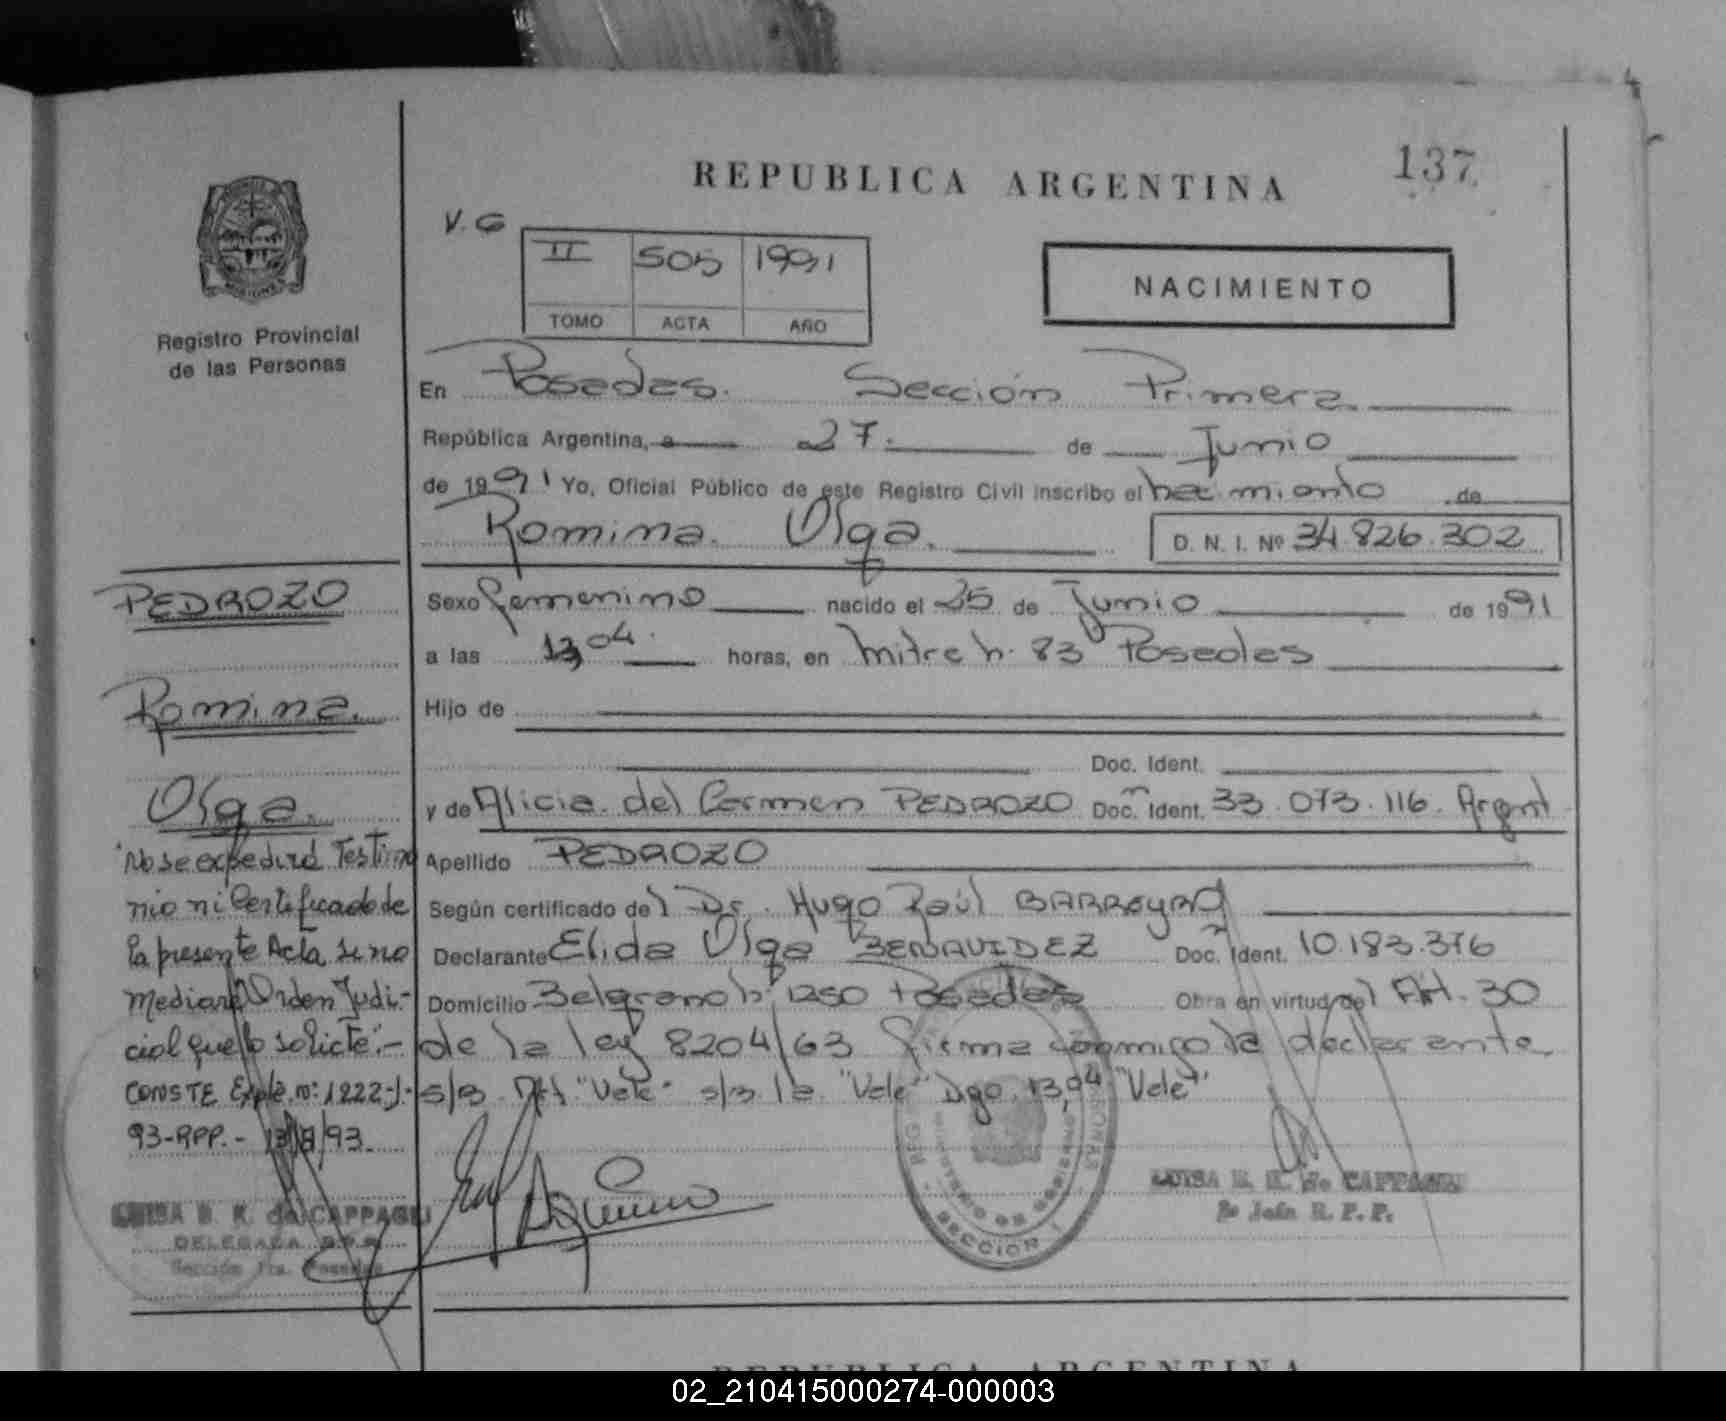 137
REPUBLICA ARGENTINA
V. G
II 505 1991
TOMO ACTA AÑO
NACIMIENTO
Registro Provincial
de las Personas
En Posadas. Sección Primera
República Argentina, a 27 de Junio
de 1991 Yo, Oficial Público de este Registro Civil inscribo el nacimiento de
Romina Olga. D. N. I. Nº 34.826.302
Sexo femenino nacido el 25 de Junio de 1991
a las 13,04 horas, en Mitre n. 83 Posadas
Hijo de
Doc. Ident.
y de Alicia del Carmen PEDROZO Doc. Ident. 33.073.116. Argent
Apellido PEDROZO
Según certificado del Dr. Hugo Raúl BARREYRO
Declarante Elida Olga BENAVIDEZ Doc. Ident. 10.183.376
Domicilio Belgrano nº 1250 Posadas Obra en virtud del Art. 30
de la ley 8204/63 firma conmigo la declarante
s/b "Vale" s/b la "Vale" Dgo 13,04 "Vale"
PEDROZO
Romina.
Olga.
No se expedirá Testimo
nio ni Certificado de
la presente Acta si no
mediare Orden Judi-
cial que lo solicite.-
CONSTE Expte. nº: 1222-J-
93-RPP.- 13/8/93.
LUISA B. K. de CAPPAGLI
DELEGADA R.P.P.
Sección 1ra. Posadas
SECCION 1
LUISA B. K. de CAPPAGLI
R. P. P.
REPUBLICA ARGENTINA
02_210415000274-000003